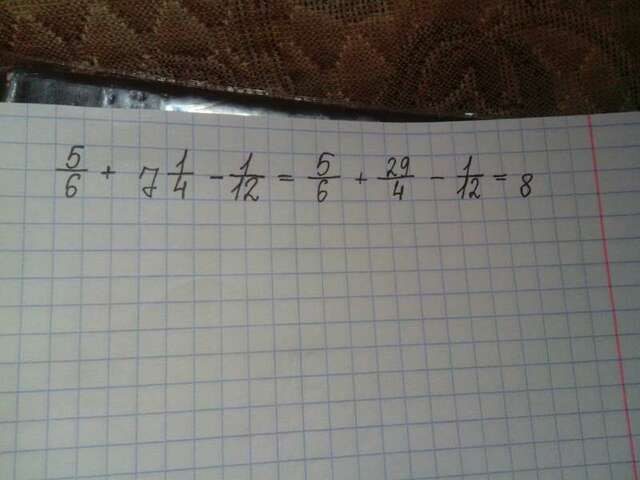 5/6 + 7 1/4 - 1/12 = 5/6 + 29/4 - 1/12 = 8